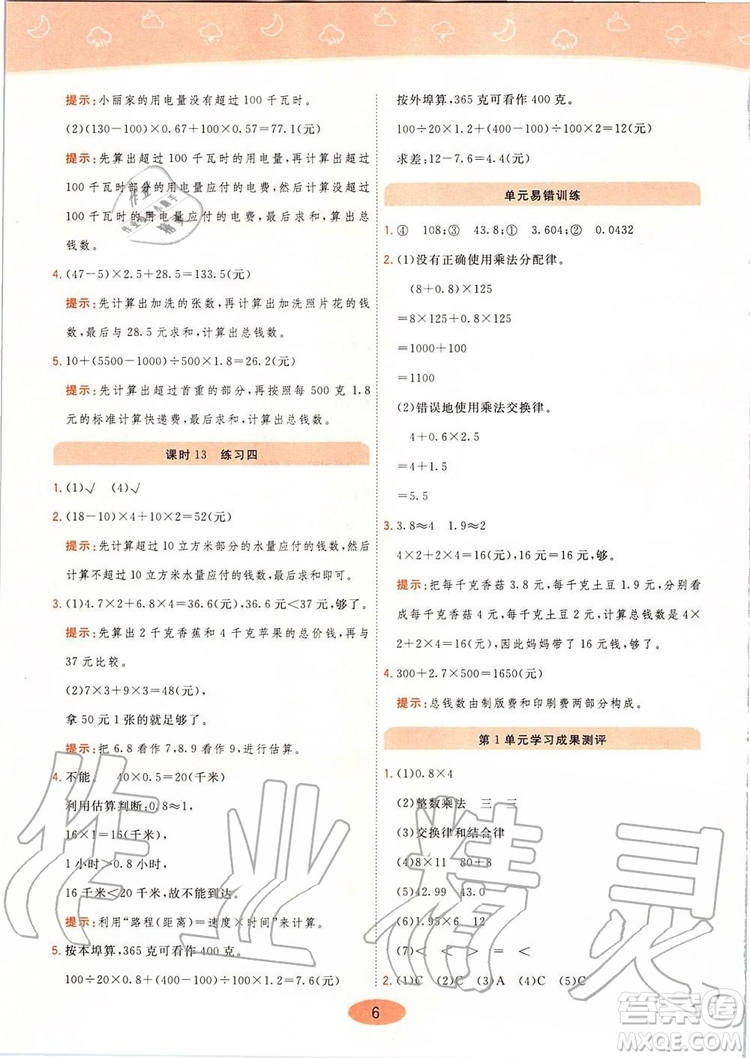 提示:小丽家的用电量没有超过 100 千瓦时。
(2)(130-100)×0.67+100×0.57=77.1(元)
提示:先算出超过 100 千瓦时的用电量,再计算出超过
100 千瓦时部分的用电量应付的电费,然后计算出 100
千瓦时的用电量应付的电费,最后求和,算出总
钱数。
4. (47-5)×2.5+28.5=133.5(元)
提示:先计算出加洗的张数,再计算出加洗照片花的钱
数,最后与 28.5 元求和,计算出总钱数。
5. 10+(5500-1000)÷500×1.8=26.2(元)
提示:先计算出超过首重的部分,再按照每 500 克 1.8
元的标准计算快递费,最后求和,计算出总钱数。
课时 13 练习四
1. (1)√ (4)√
2. (18-10)×4+10×2=52(元)
提示:先计算超过 10 立方米部分的水量应付的钱数,然后
计算不超过 10 立方米部分的水量应付的钱数,最后求和。
3. (1)4.7×2+6.8×4=36.6(元) 36.6元<37元,够了。
提示:先算出 2 千克香蕉和 4 千克苹果的总价钱,再与
37 元比较。
(2)7×3+9×3=48(元)
拿 50 元 1 张的就足够了。
提示:把 6.8 看作 7,8.9 看作 9,进行估算。
4. 不能。 40×0.5=20(千米)
利用估算判断:0.8≈1
16×1=16(千米)
1 小时>0.8 小时
16 千米<20 千米,故不能。
提示:利用“路程(距离)=速度×时间”来计算。
5. 按本埠算,365 克可看作 400 克。
100÷20×0.8+(400-100)÷100×1.2=7.6(元)
按外埠算,365 克可看作 400 克。
100÷20×1.2+(400-100)÷100×2=12(元)
求差:12-7.6=4.4(元)
单元易错训练
1. ④ 108;③ 43.8;① 3.604;② 0.0432
2. (1)没有正确使用乘法分配律。
(8+0.8)×125
=8×125+0.8×125
=1000+100
=1100
(2)错误地使用乘法交换律。
4+0.6×2.5
=4+1.5
=5.5
3. 3.8≈4 1.9≈2
4×2+2×2+4=16(元) 16元=16元,够。
提示:把每千克香菇 3.8 元、每千克土豆 1.9 元,分别看
成每千克香菇 4 元、每千克土豆 2 元,计算总钱数 4×
2+2×2+4=16(元)。因此妈妈带 16 元钱,够。
4. 300+2.7×500=1650(元)
提示:总钱数由制版费和印刷费两部分构成。
第 1 单元学习成果测评
1. (1)0.8×4
(2)整数乘法 三 三
(3)交换律和结合律
(4)8×11 80+8
(5)42.99 43.0
(6)1.95×6 12
(7)< < > = <
2. (1)C (2)C (3)A (4)C (5)C
6
作业精灵
答案圈
MXQE.COM